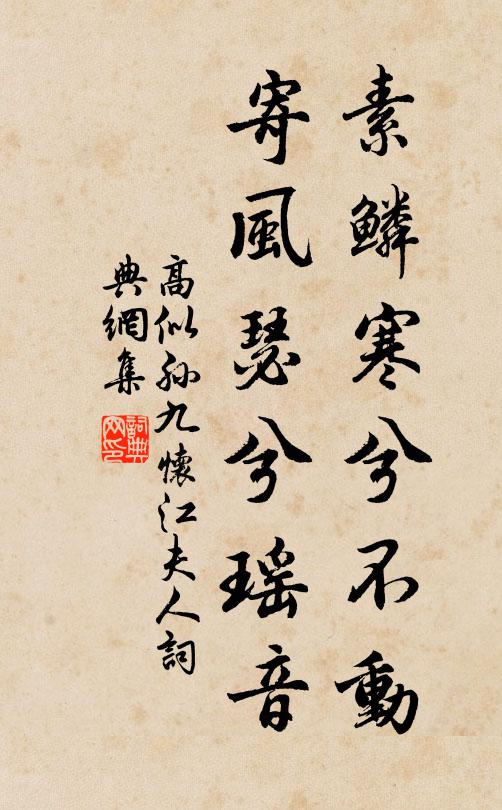 素鱗寒兮不動
寄風瑟兮瑶音
高似孫九懷江夫人詞
典網集
詞典
网印